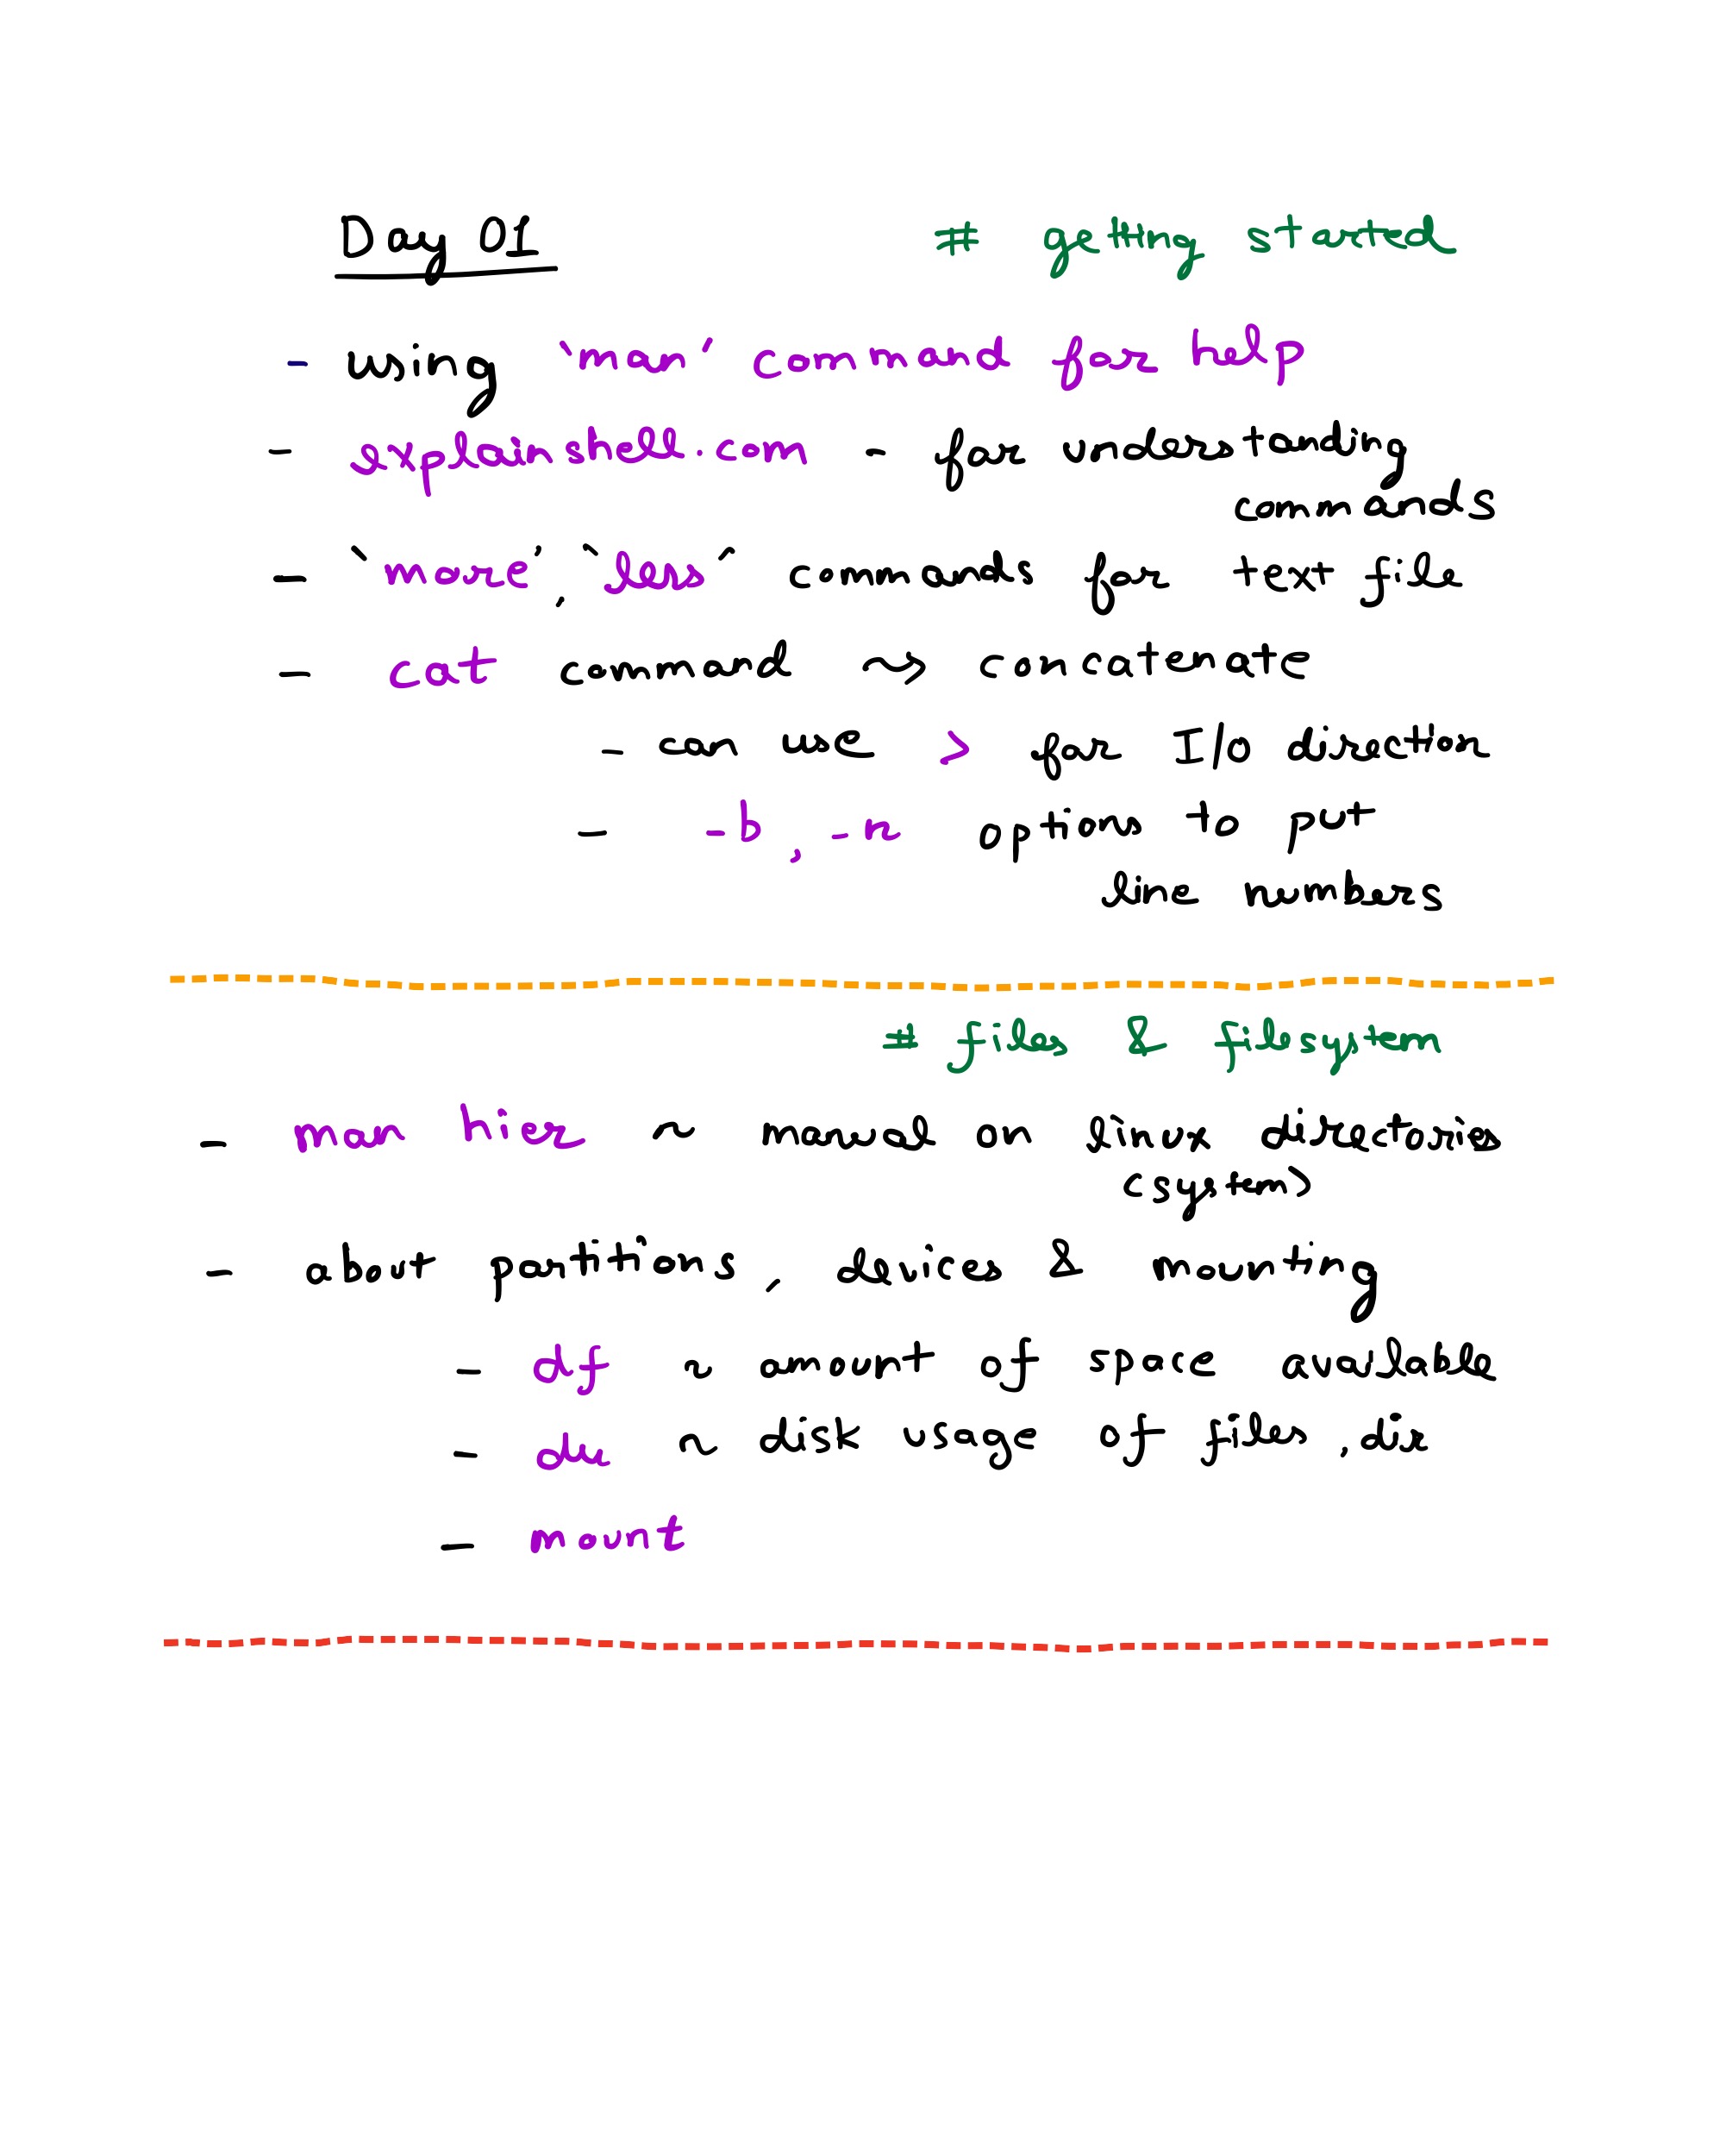 Day 01 # getting started
- using `man' command for help
- explainshell.com - for understanding
commands
- `more', `less' commands for text file
- cat command ~> concatenate
- can use > for I/O direction
- -b, -n options to put
line numbers
# files & filesystem
- man hier ~ manual on linux directories
(system)
- about partitions, devices & mounting
- df ~ amount of space available
- du ~ disk usage of files, dir
- mount